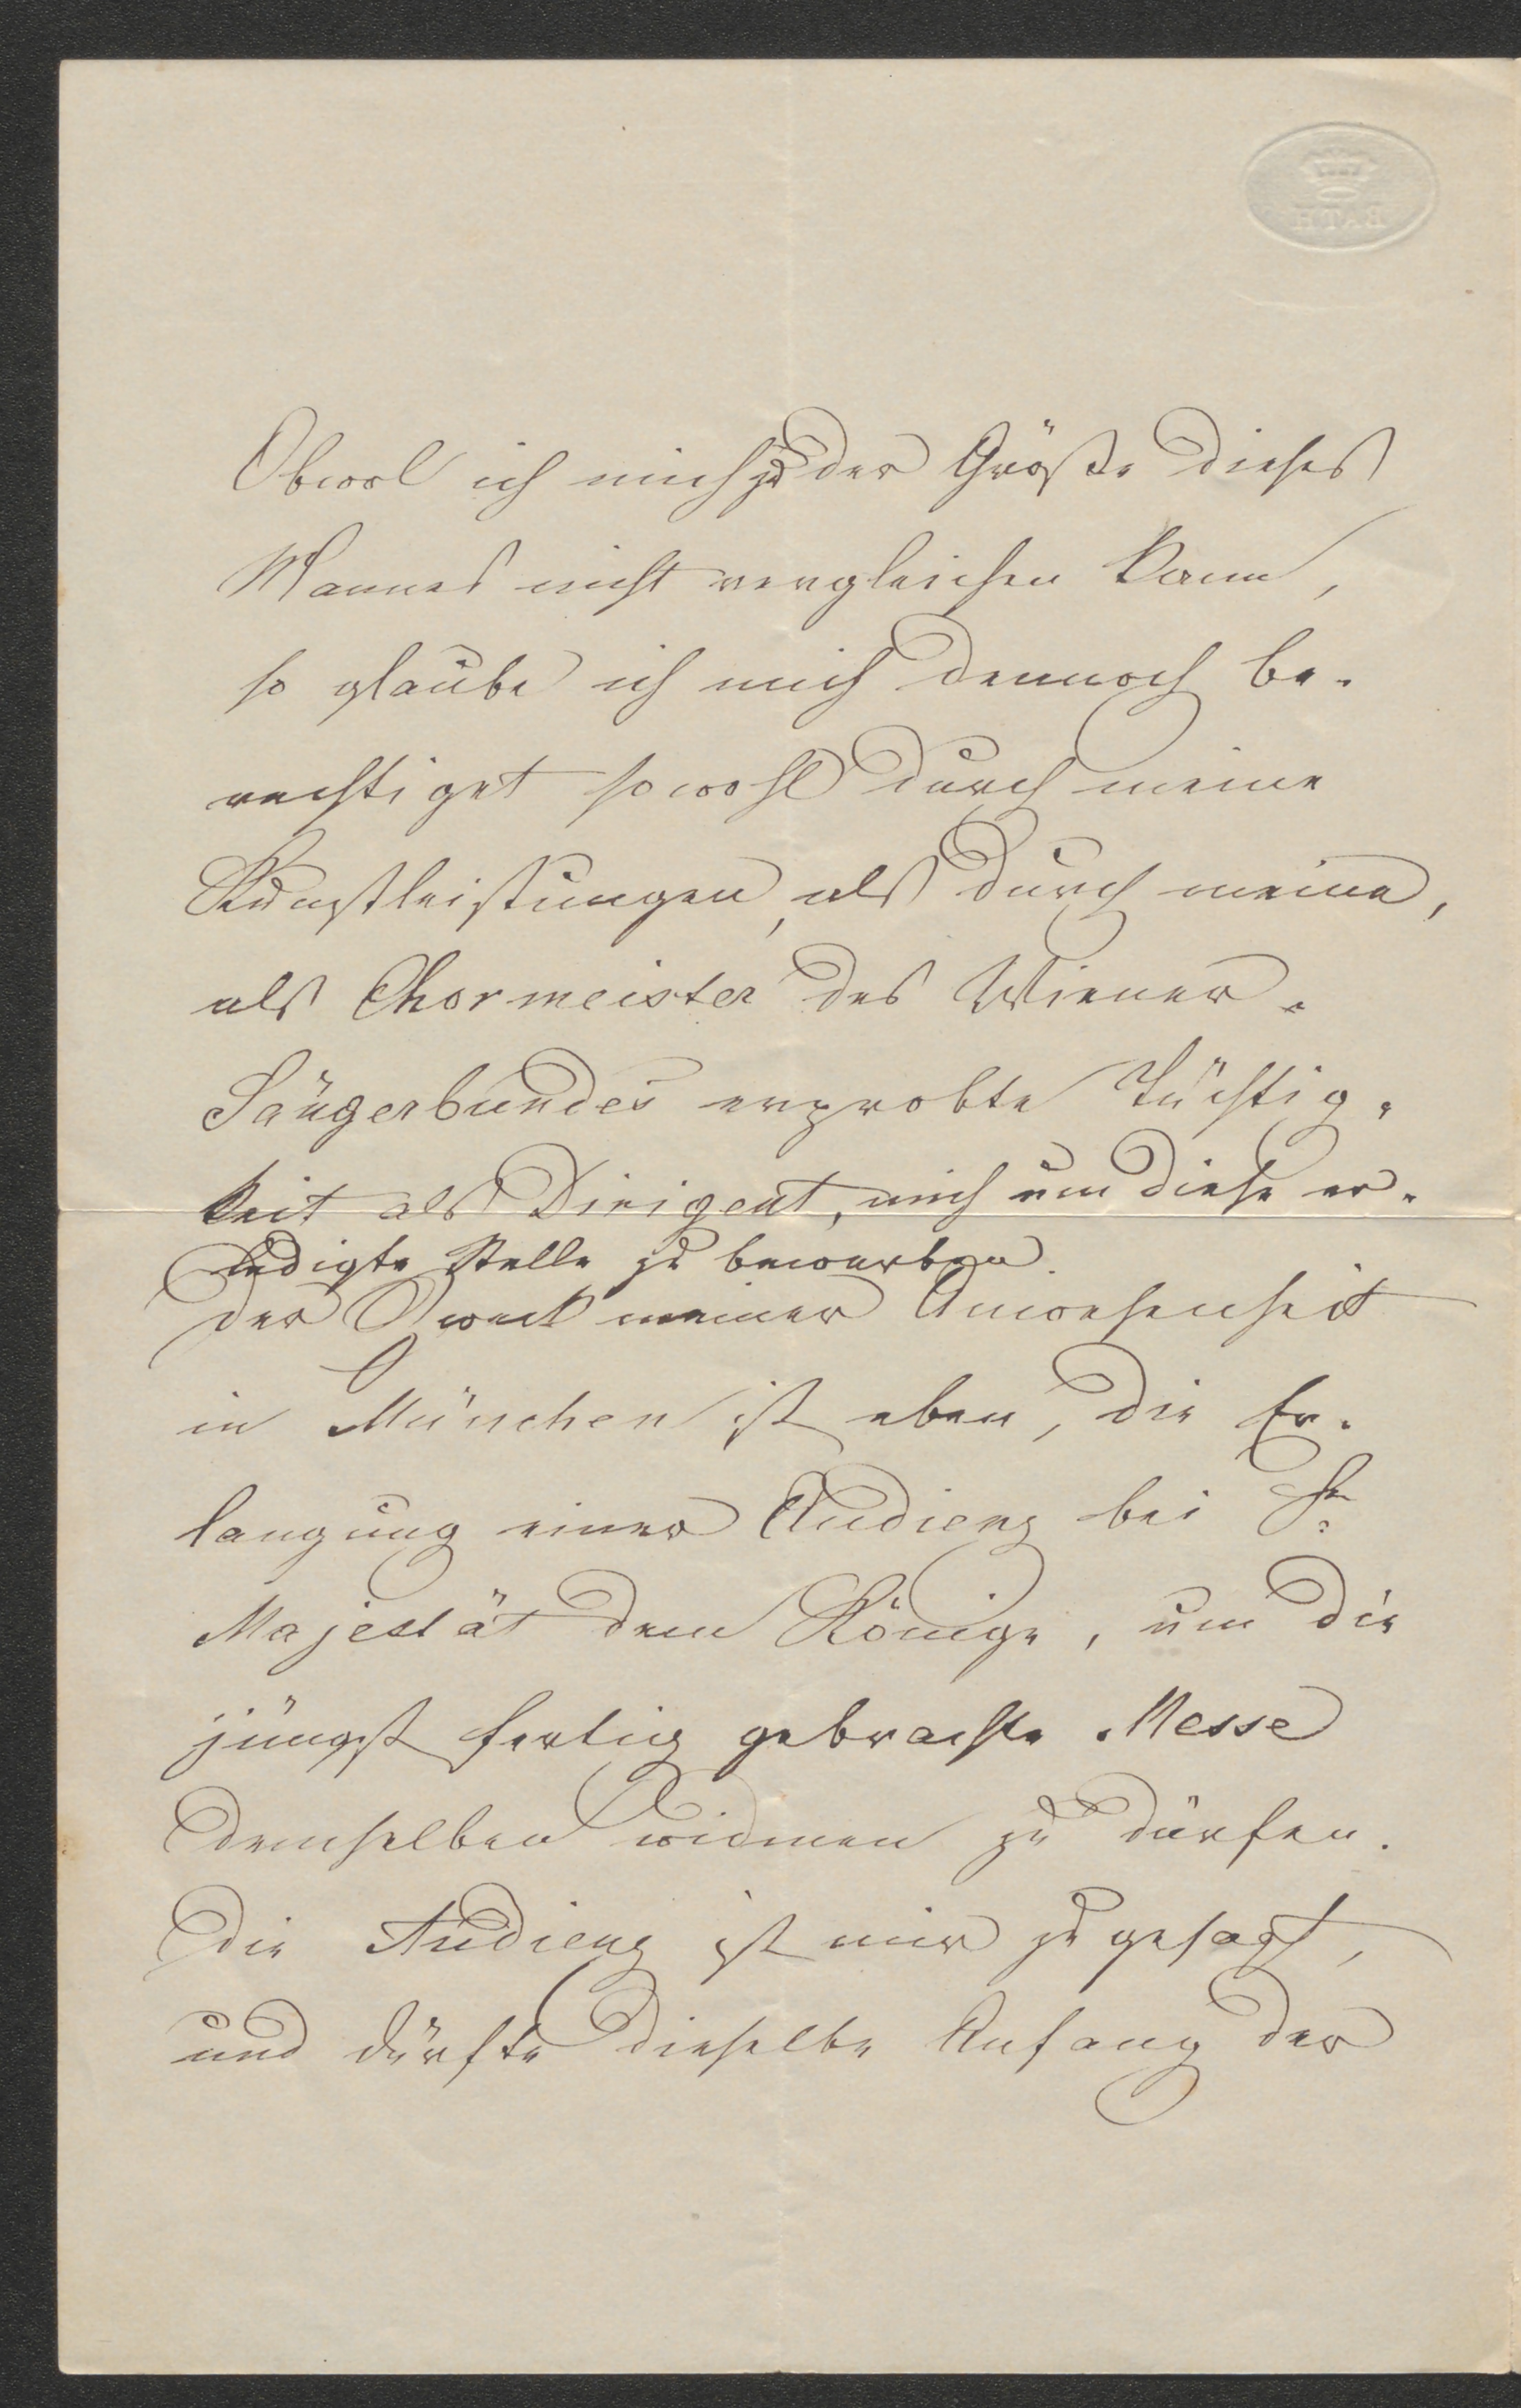 BATH
Obwol ich mich zu der Größe dieses
Mannes nicht vergleichen kann,
so glaube ich mich dennoch be-
rechtiget sowohl durch meine
Kunstleistungen, als durch meine,
als Chormeister des Wiener-
Sängerbundes erprobte Tüchtig-
keit als Dirigent, mich um diese er-
ledigte Stelle zu bewerben.
Der Zweck meiner Anwesenheit
in München ist eben, die Er-
langung einer Audienz bei Sr
Majestät dem Könige, um die
jüngst fertig gebrachte Messe
demselben widmen zu dürfen.
Die Audienz ist mir zugesagt,
und dürfte dieselbe Anfang der